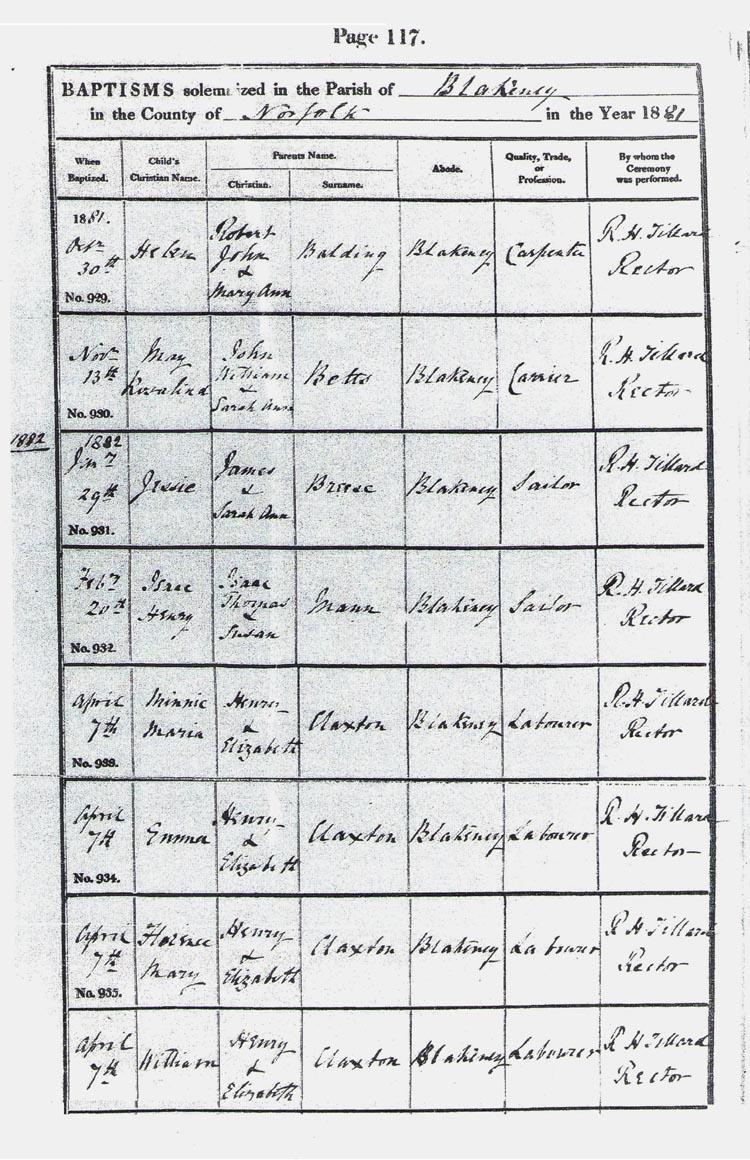 Page 117.
BAPTISMS solemnized in the Parish of Blakeney
in the County of Norfolk in the Year 1881
When Baptized.
Child's Christian Name.
Parents Name.
Christian.
Surname.
Abode.
Quality, Trade, or Profession.
By whom the Ceremony was performed.
1881.
Octr
30th
No. 929.
Helen
Robert
John
&
Mary Ann
Balding
Blakeney
Carpenter
R. H. Tillard
Rector
Novr
13th
No. 930.
May
Rosalind
John
William
&
Sarah Ann
Betts
Blakeney
Carrier
R. H. Tillard
Rector
1882
1882
Jany
29th
No. 931.
Jessie
James
&
Sarah Ann
Breese
Blakeney
Sailor
R. H. Tillard
Rector
Feby
20th
No. 932.
Isaac
Henry
Isaac
Thomas
&
Susan
Mann
Blakeney
Sailor
R. H. Tillard
Rector
April
7th
No. 933.
Minnie
Maria
Henry
&
Elizabeth
Claxton
Blakeney
Labourer
R. H. Tillard
Rector
April
7th
No. 934.
Emma
Henry
&
Elizabeth
Claxton
Blakeney
Labourer
R. H. Tillard
Rector
April
7th
No. 935.
Florence
Mary
Henry
&
Elizabeth
Claxton
Blakeney
Labourer
R H Tillard
Rector
April
7th
William
Henry
&
Elizabeth
Claxton
Blakeney
Labourer
R H Tillard
Rector